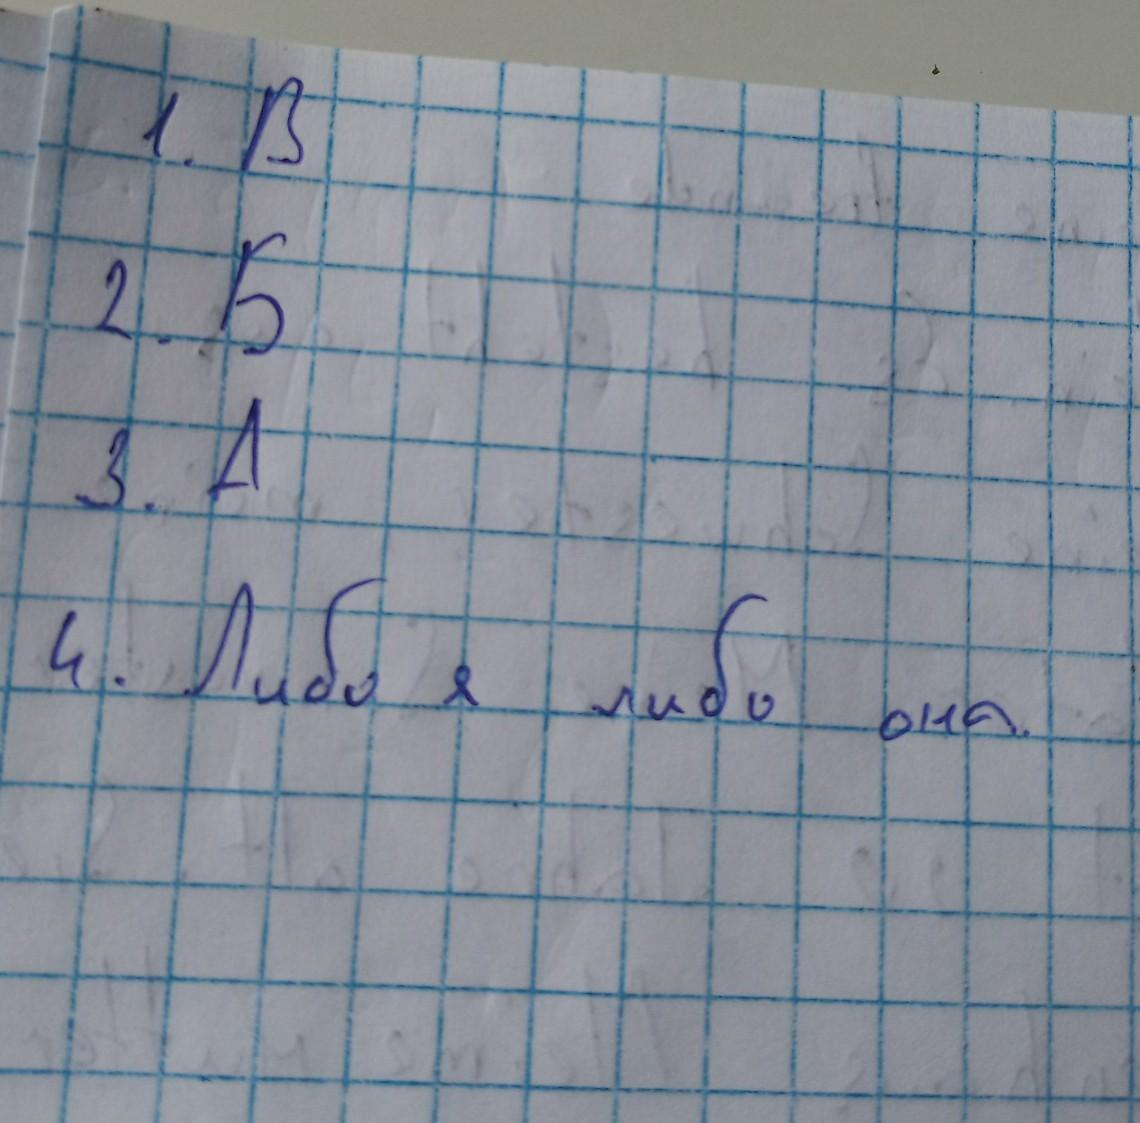 1. В
2. Б
3. А
4. Либо я либо она.